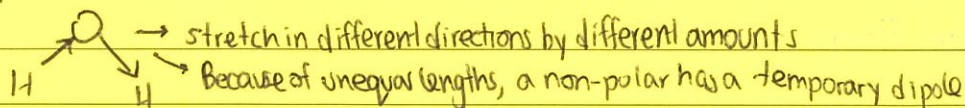 O → stretch in different directions by different amounts
H H → Because of unequal lengths, a non-polar has a temporary dipole